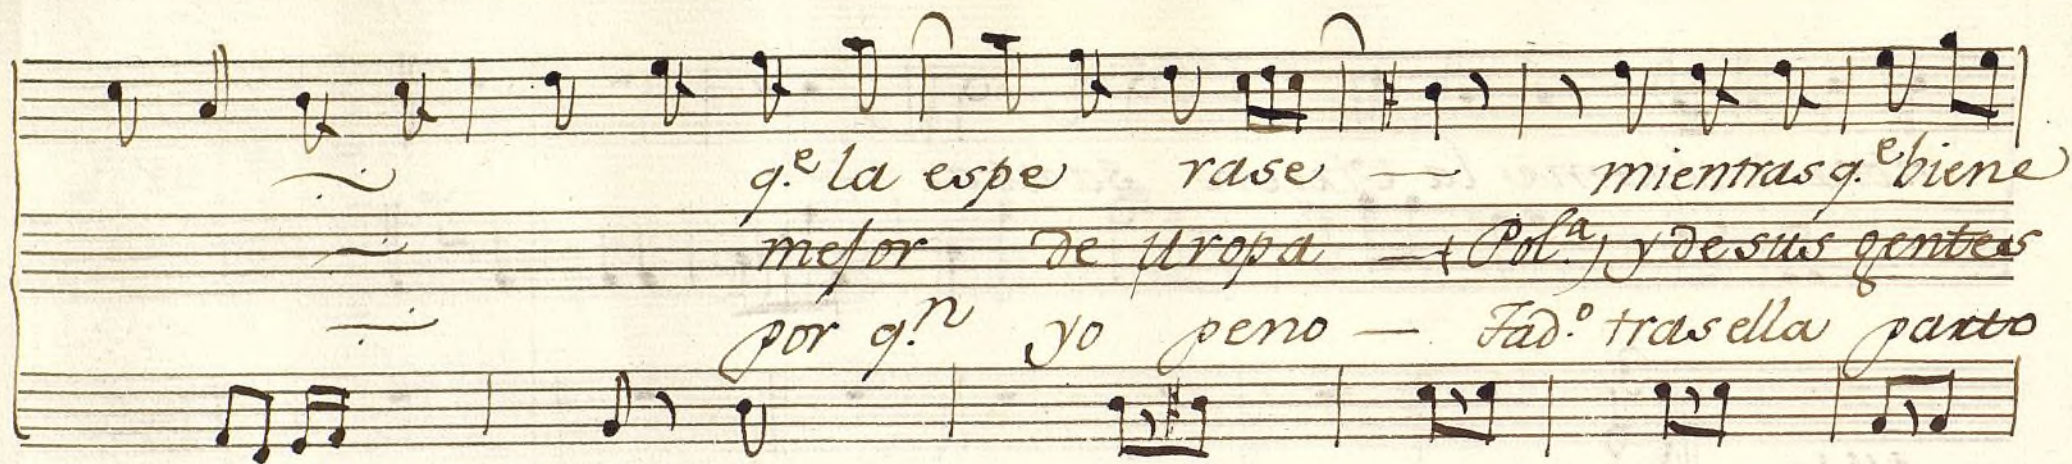 q.e la espe rase — mientras q.e biene
mejor de Uropa — (Pol.a) y de sus gentes
por q.n yo peno — Tad.o tras ella parto